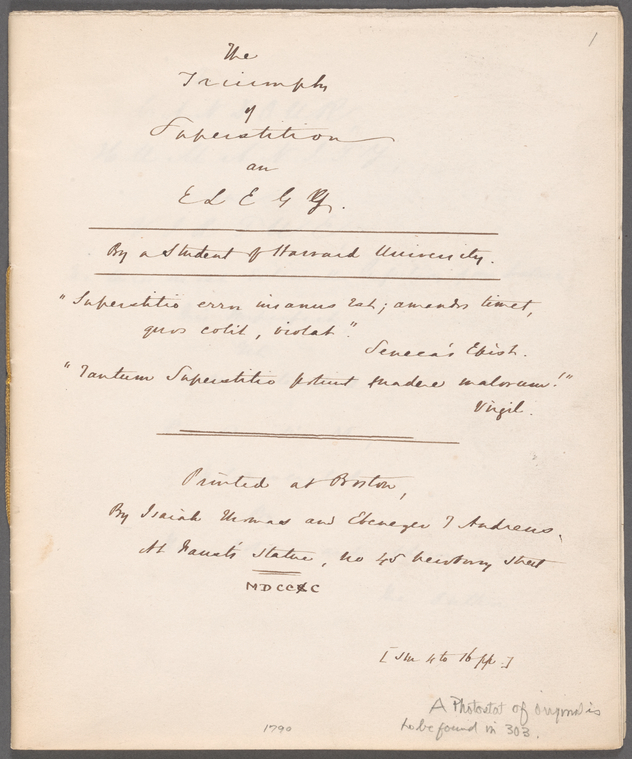 1
The
Triumph
of
Superstition
an
ELEGY.
By a Student of Harvard University.
"Superstitio error insanus est; amandos timet,
quos colit, violat."
Seneca's Epist.
"Tantum Superstitio potuit suadere malorum!"
Virgil.
Printed at Boston,
By Isaiah Thomas and Ebenezer T Andrews,
At Faust's Statue, no 45 Newbury Street
MDCCXC
[sm 4to 16 pp.]
A Photostat of original is
to be found in 303.
1790